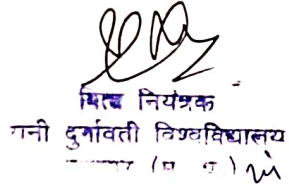 वित्त नियंत्रक
रानी दुर्गावती विश्वविद्यालय